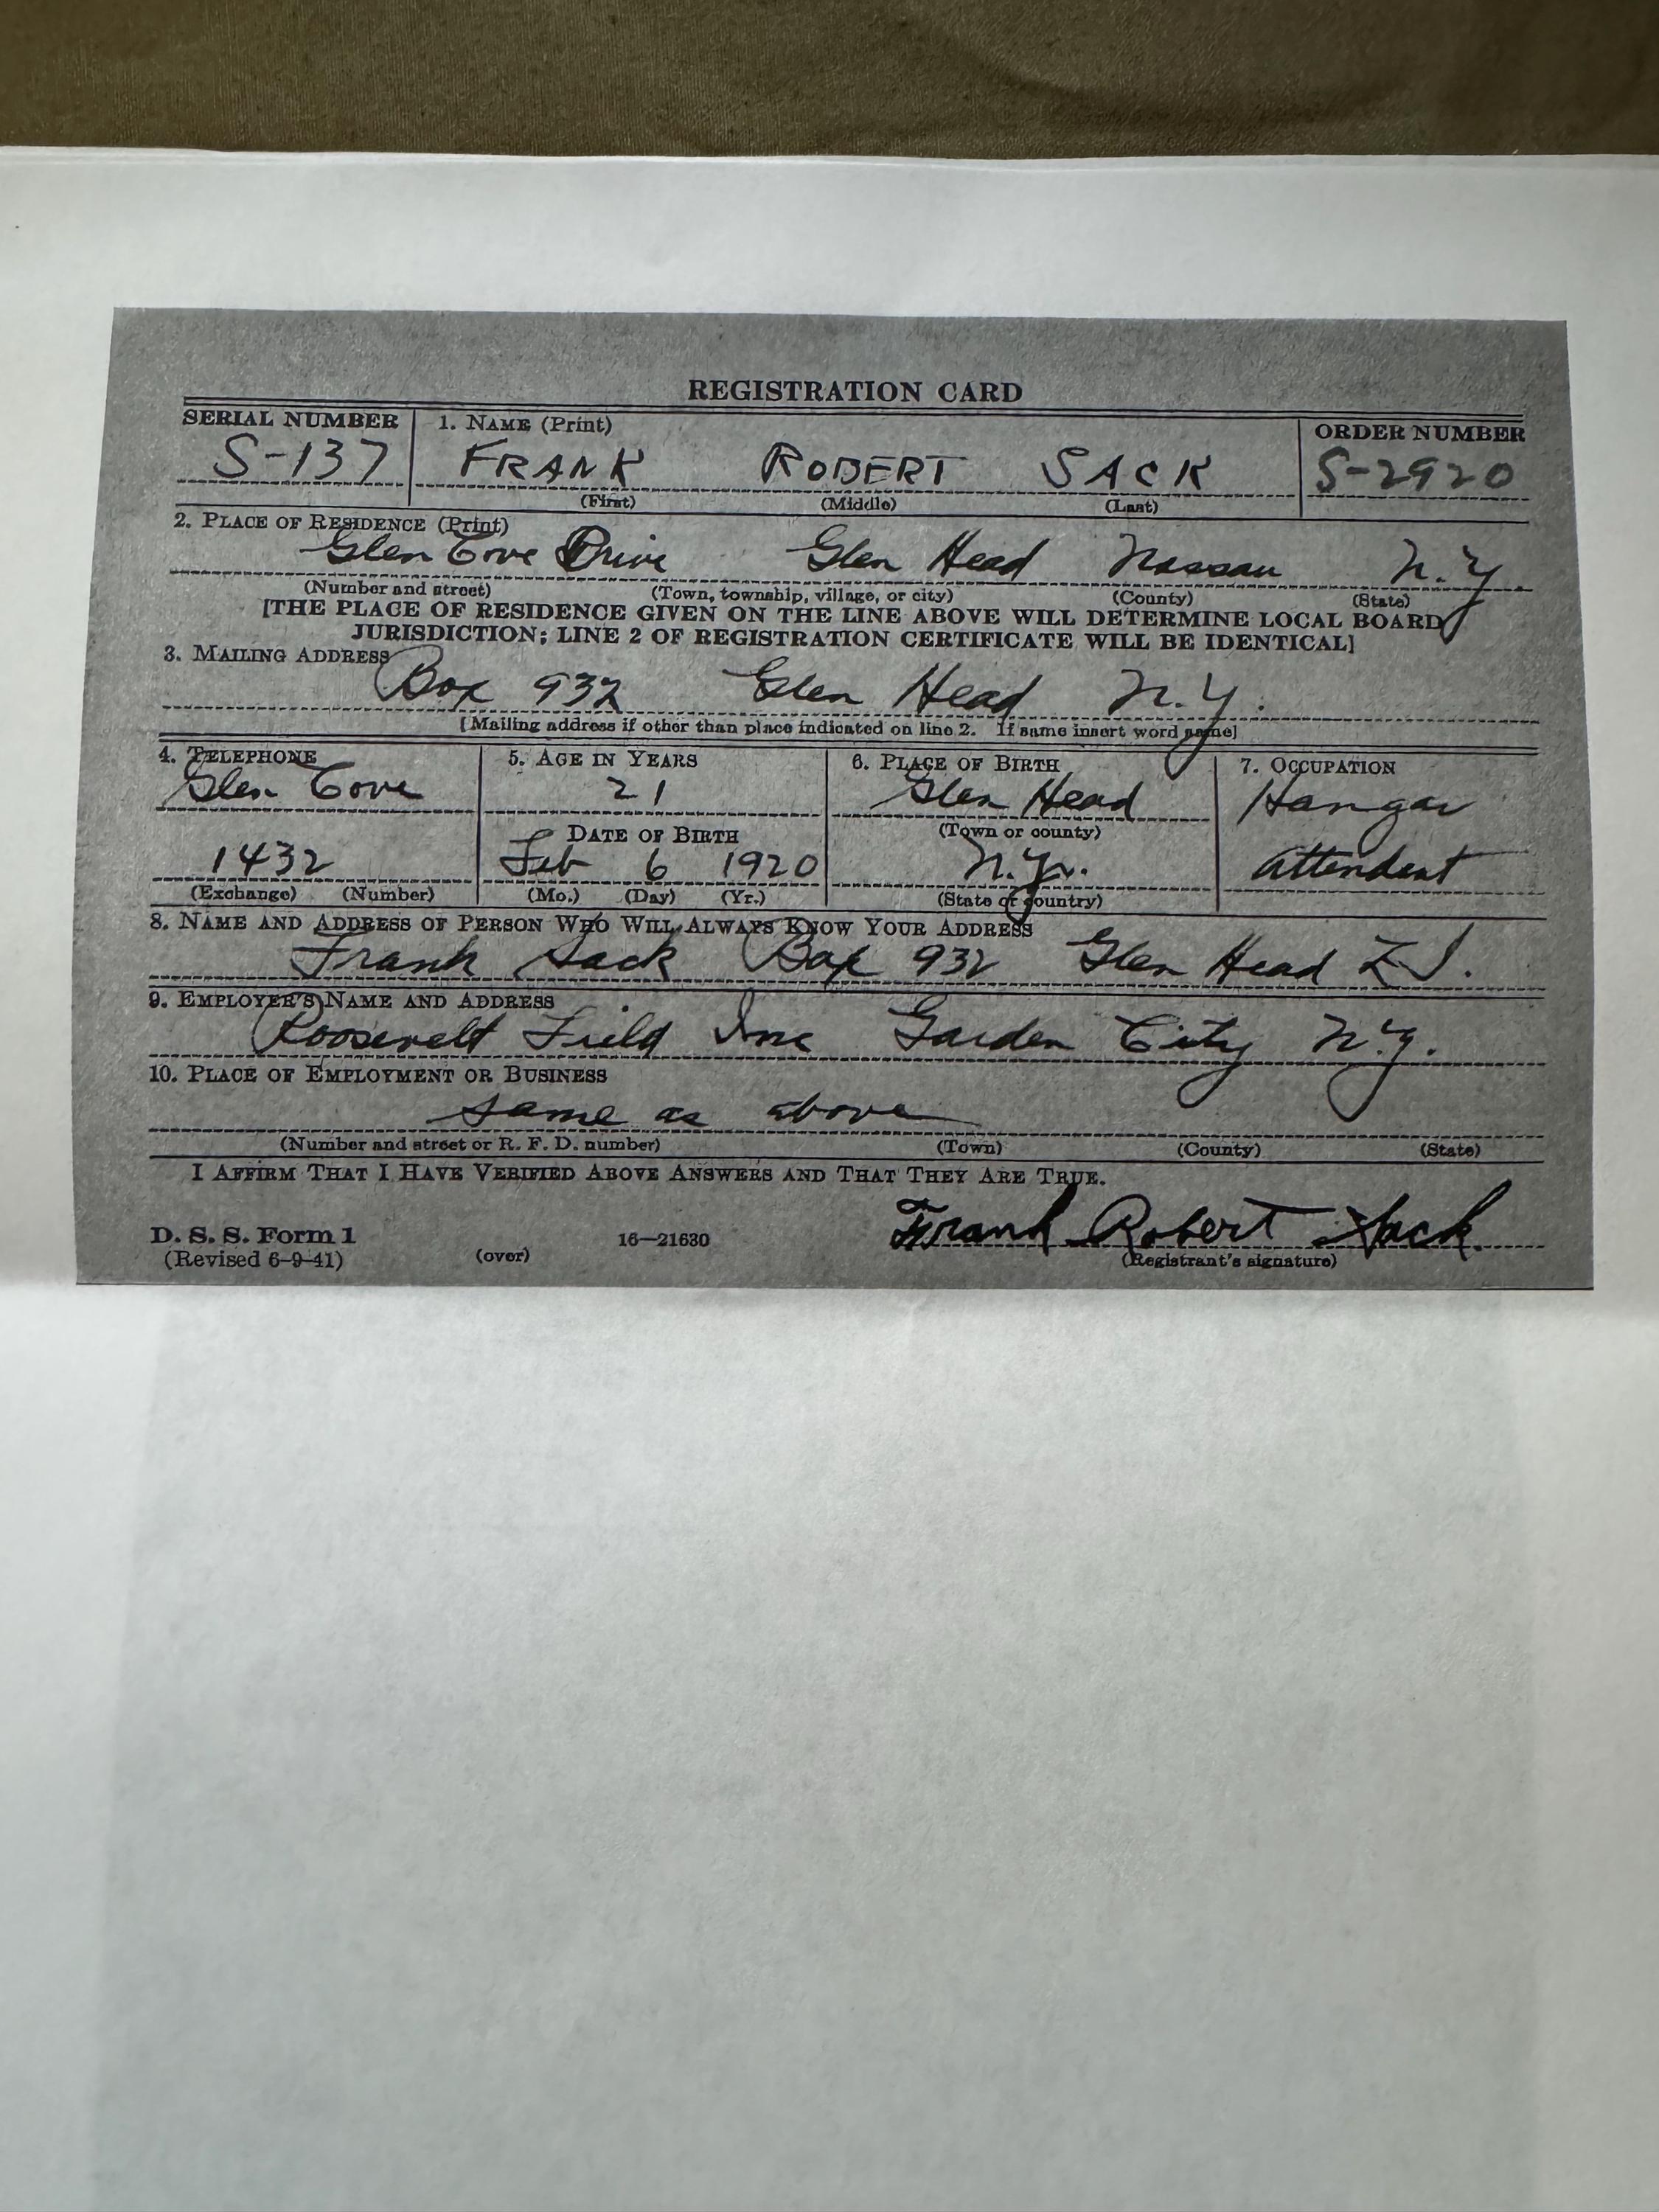 REGISTRATION CARD
SERIAL NUMBER 1. NAME (Print) ORDER NUMBER
S-137 FRANK ROBERT SACK S-2920
(First) (Middle) (Last)
2. PLACE OF RESIDENCE (Print)
Glen Cove Drive Glen Head Nassau N.Y.
(Number and street) (Town, township, village, or city) (County) (State)
[THE PLACE OF RESIDENCE GIVEN ON THE LINE ABOVE WILL DETERMINE LOCAL BOARD
JURISDICTION; LINE 2 OF REGISTRATION CERTIFICATE WILL BE IDENTICAL]
3. MAILING ADDRESS
Box 932 Glen Head N.Y.
[Mailing address if other than place indicated on line 2. If same insert word same]
4. TELEPHONE 5. AGE IN YEARS 6. PLACE OF BIRTH 7. OCCUPATION
Glen Cove 21 Glen Head Hangar
DATE OF BIRTH (Town or county)
1432 Feb 6 1920 N.Y. attendent
(Exchange) (Number) (Mo.) (Day) (Yr.) (State or country)
8. NAME AND ADDRESS OF PERSON WHO WILL ALWAYS KNOW YOUR ADDRESS
Frank Sack Box 932 Glen Head L I.
9. EMPLOYER'S NAME AND ADDRESS
Roosevelt Field Inc Garden City N.Y.
10. PLACE OF EMPLOYMENT OR BUSINESS
same as above
(Number and street or R. F. D. number) (Town) (County) (State)
I AFFIRM THAT I HAVE VERIFIED ABOVE ANSWERS AND THAT THEY ARE TRUE.
Frank Robert Sack.
D. S. S. Form 1 16—21630
(Revised 6-9-41) (over) (Registrant's signature)